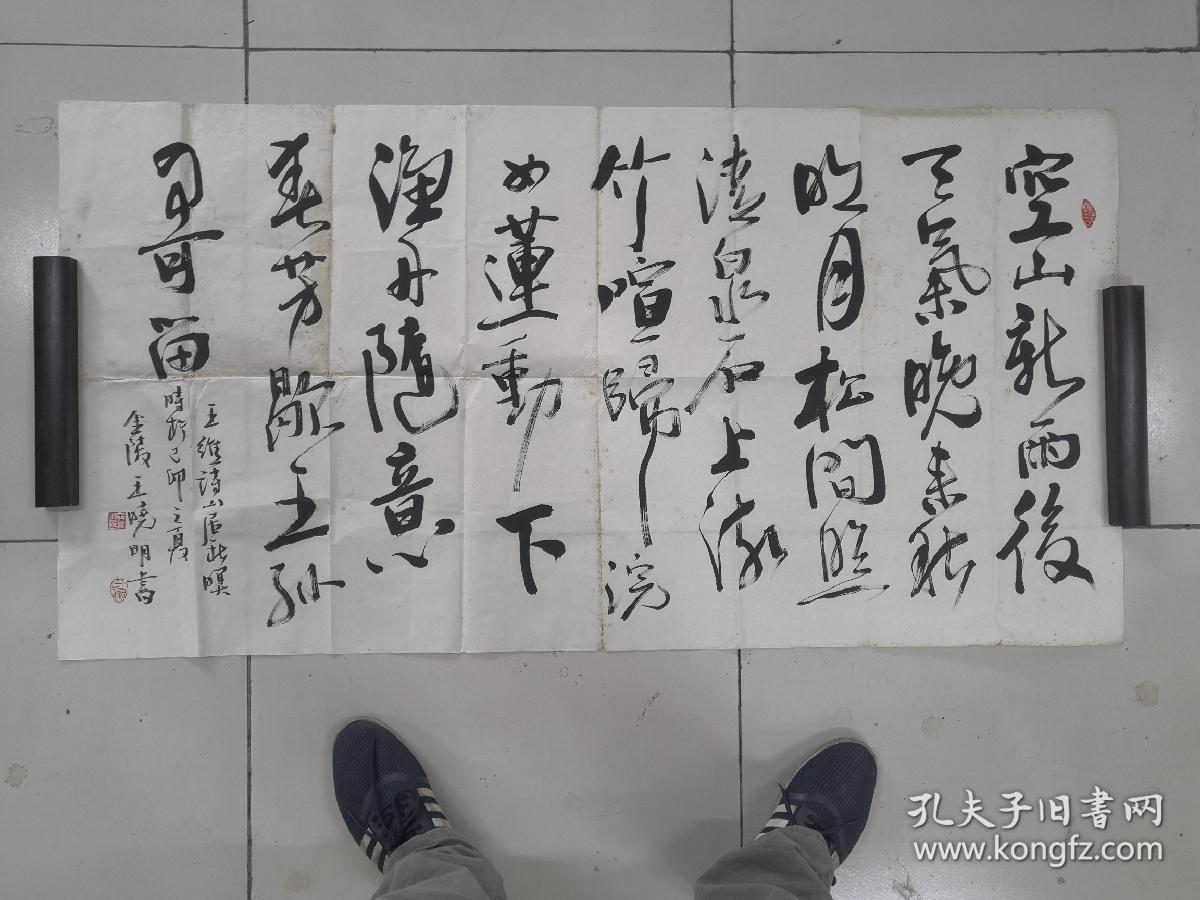 空山新雨後
天氣晚来秋
明月松間照
清泉石上流
竹喧歸浣
女蓮動下
漁舟隨意
春芳歇王孫
自可留
王維詩山居秋暝
時於己卯之夏
金陵王曉明書
孔夫子旧书网
www.kongfz.com